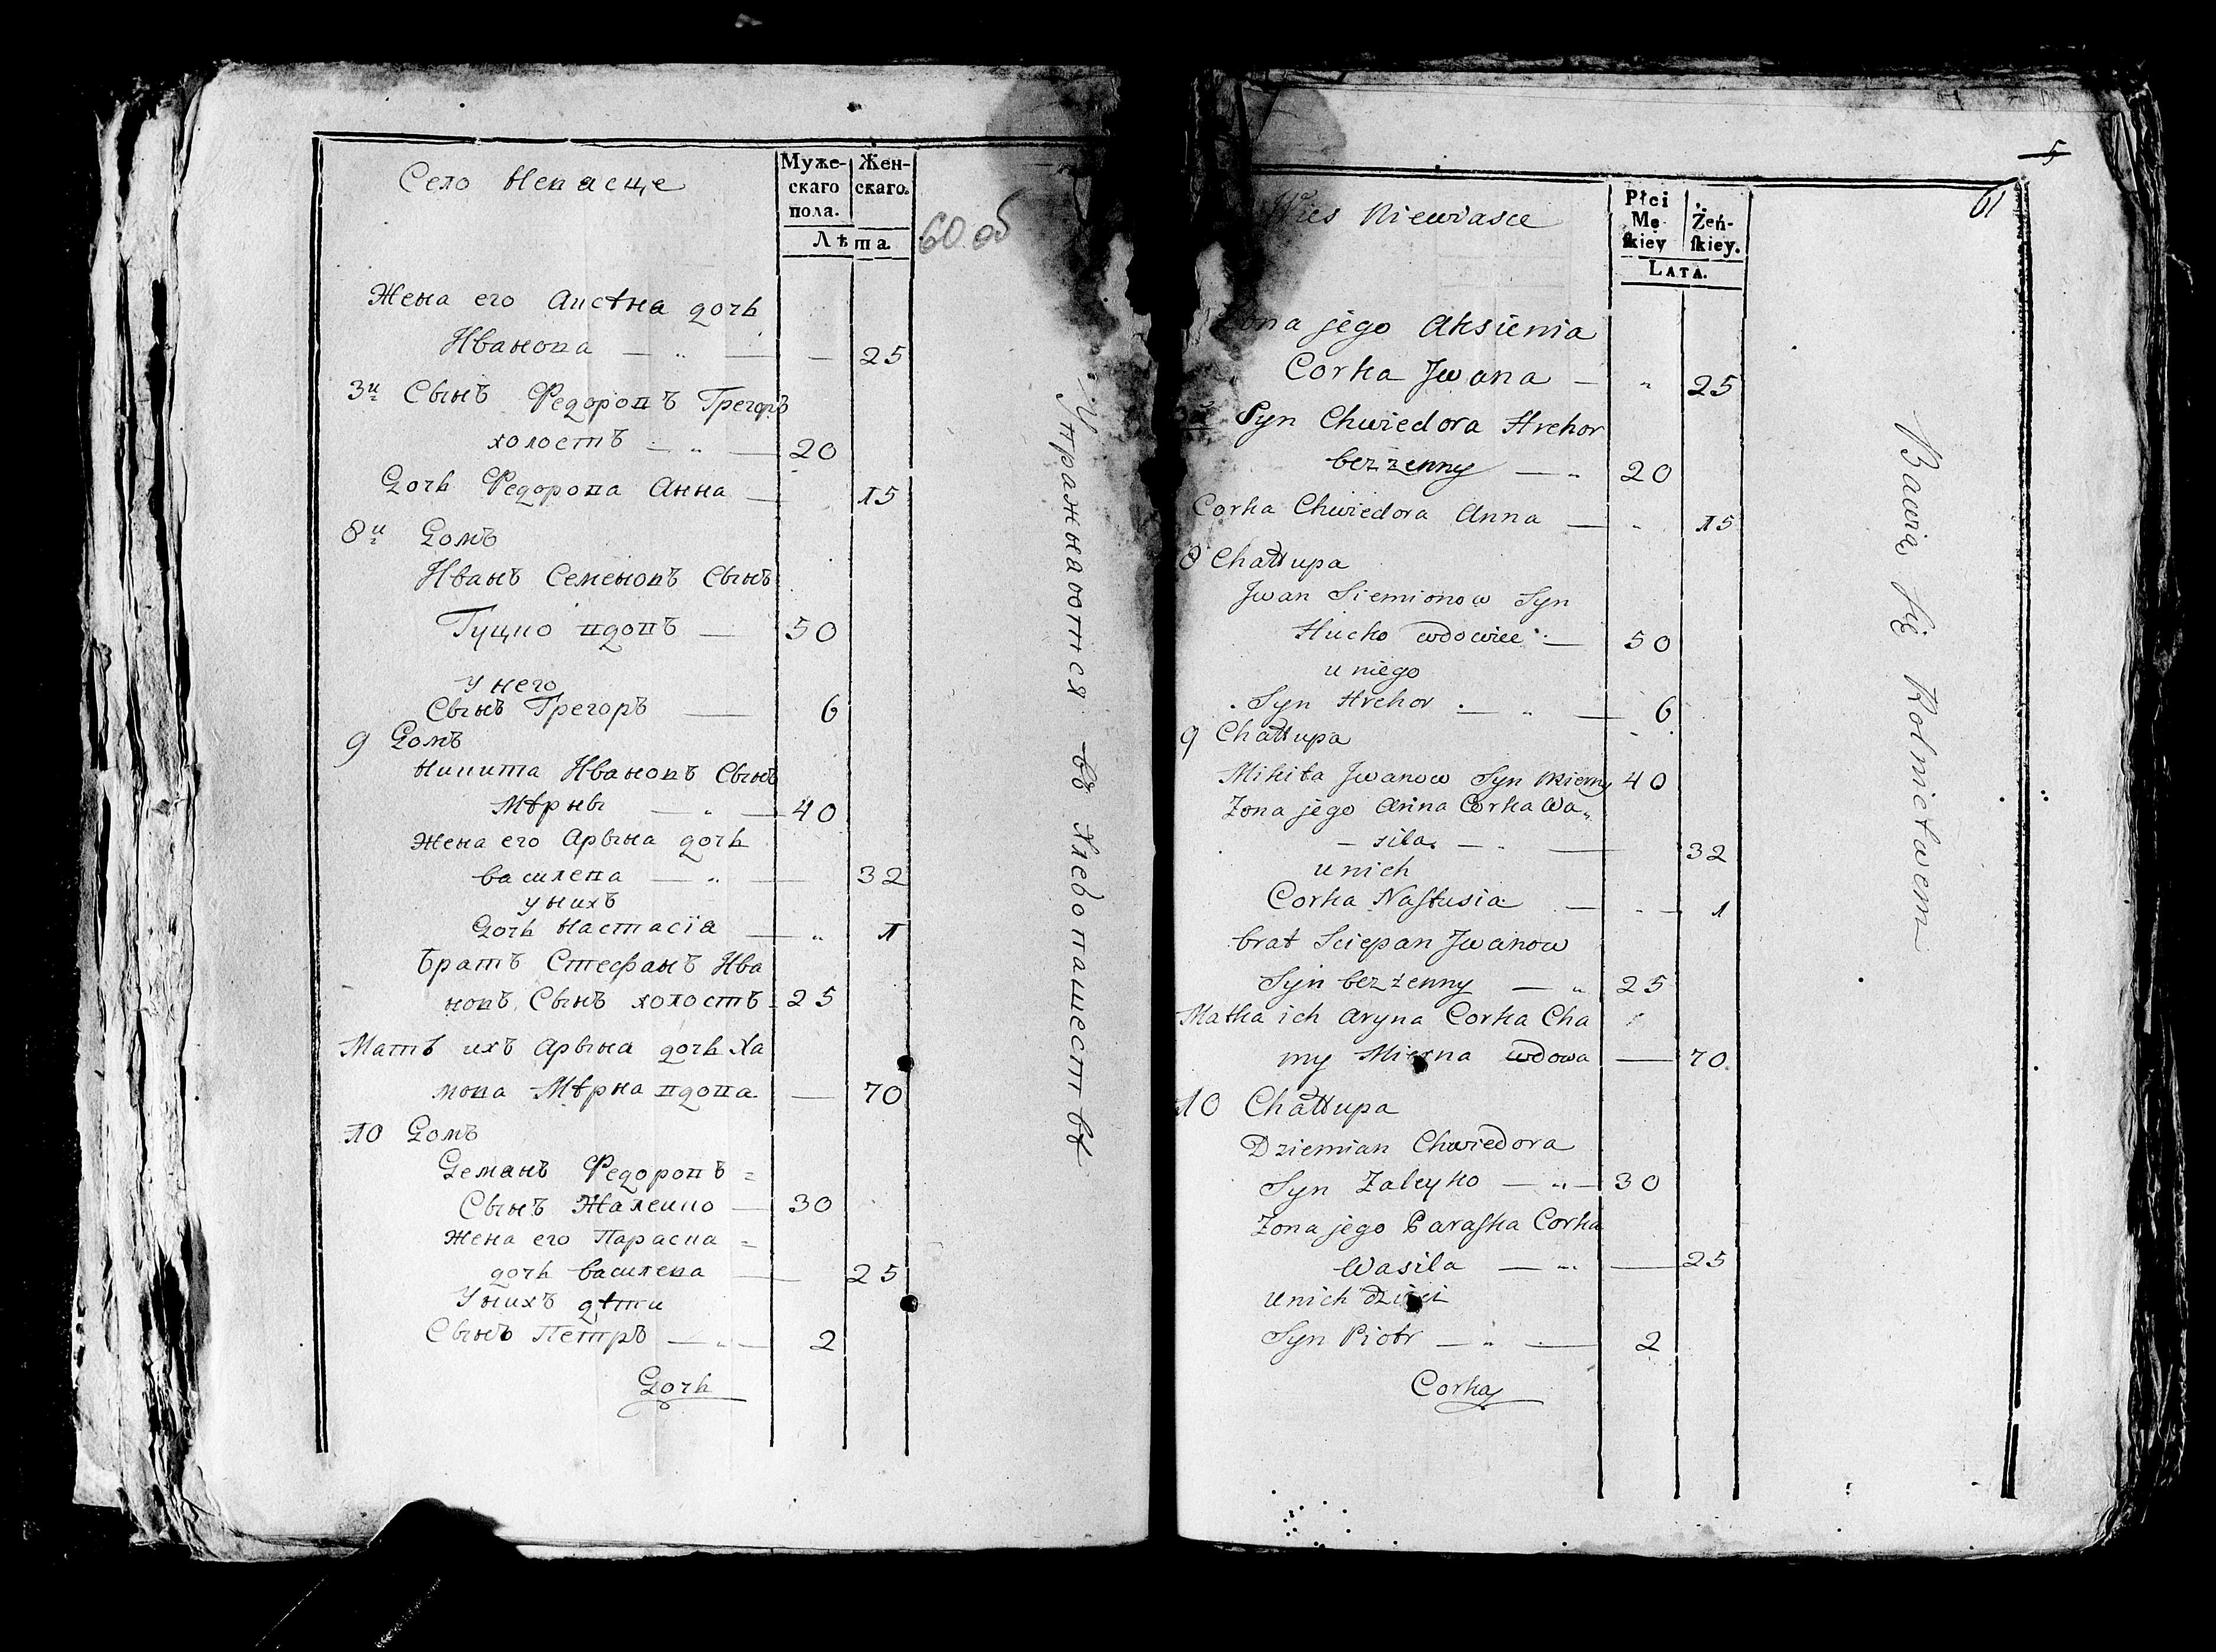 Село Непасце
Муже-
скаго
пола.
Жен-
скаго.
Лѣта
60 об
Жена его Аксѣна дочь
Иванова — „ — — 25
3й Сынъ Федоровъ Грегоръ
холостъ — „ — 20
Дочь Федорова Анна — 15
8й Домъ
Иванъ Семеновъ Сынъ
Гуцко вдовъ — 50
у него
Сынъ Грегоръ — 6
9 Домъ
Никита Ивановъ Сынъ
Мѣрны — „ — 40
Жена его Арына дочь
Василева — „ — 32
у нихъ
Дочь Настасіа — „ 1
Братъ Стефанъ Ива
новъ Сынъ холостъ - 25
Мать ихъ Арына дочь Ха
мова Мѣрна вдова — 70
10 Домъ
Деманъ Федоровъ =
Сынъ Жалейко — 30
Жена его Параска =
дочь Василева — 25
У нихъ дѣти
Сынъ Петръ — „ — 2
Дочь
Упражняются въ Хлебопашествѣ
5
61
Wies Niewiasce
Płci
Mę
skiey
Żeń-
skiey.
LATA.
Zona jego Aksienia
Corka Jwana — „ 25
Syn Chwiedora Hrehor
bezzenny — „ 20
Corka Chwiedora Anna — „ 15
8 Chałłupa
Jwan Siemionow Syn
Hucko wdowiec — 50
u niego
Syn Hrehor — „ — 6
9 Chałłupa
Mikita Jwanow Syn Mierny 40
Zona jego Arina Corka Wa„
– sila. — „ — 32
u nich
Corka Nastusia — „ — 1
brat Sciepan Jwanow
Syn bezżenny — „ 25
Matka ich Aryna Corka Cha
my Mierna wdowa — 70
10 Chałłupa
Dziemian Chwiedora
Syn Zaleyko — „ — 30
Zona jego Paraska Corka
Wasila — „ — 25
u nich dzieci
Syn Piotr — „ — 2
Corka
Bawią się Rolnictwem